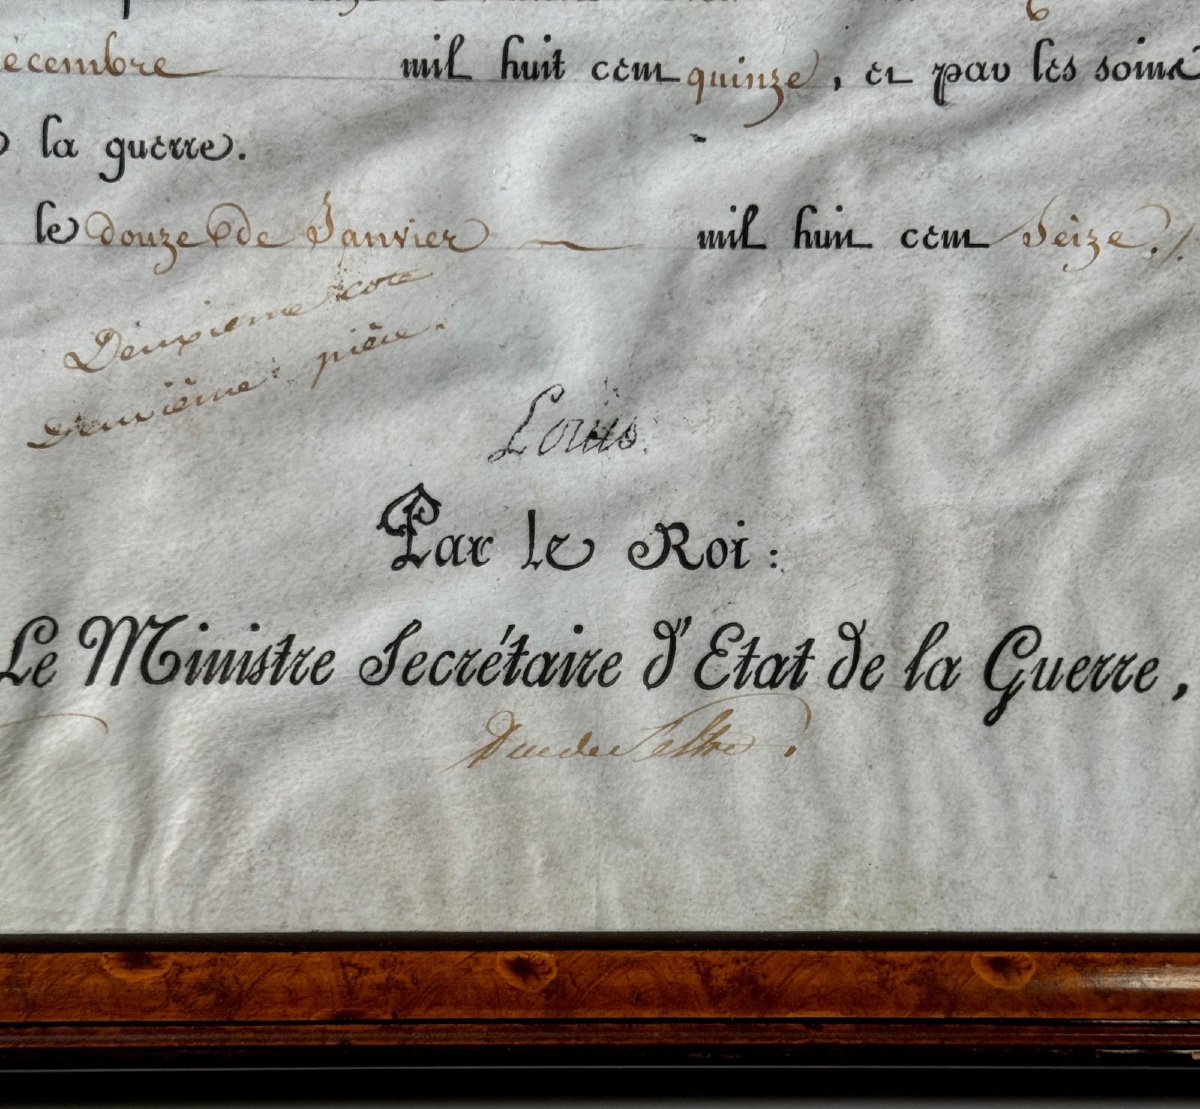 écembre mil huit cent quinze, et par les soins
la guerre.
le douze de Janvier mil huit cent Seize ./.
Deuxieme cote
deuxième pièce.
Louis.
Par le Roi :
Le Ministre Secrétaire d'Etat de la Guerre,
Duc de Feltre.